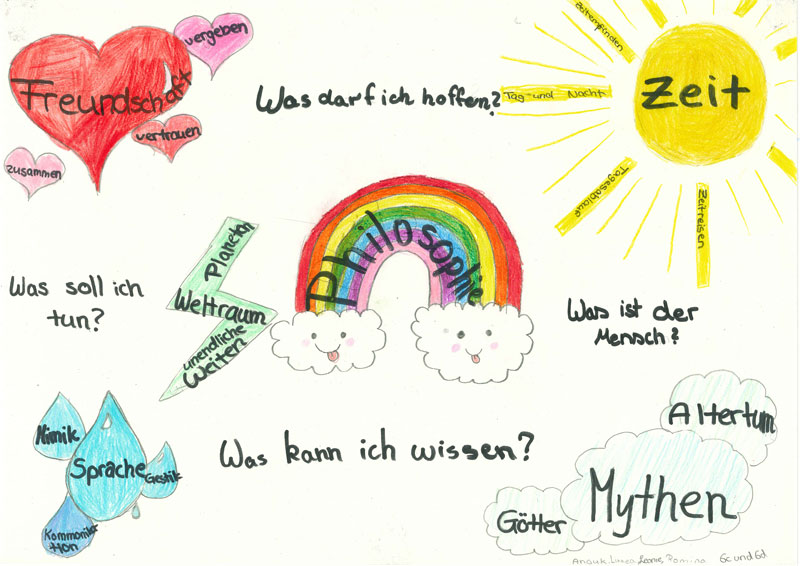 Freundschaft
vergeben
vertrauen
zusammen
Was darf ich hoffen?
Zeit
Zeitempfinden
Tag und Nacht
Tagesablauf
Zeitreisen
Philosophie
Planeten
Weltraum
unendliche
Weiten
Was soll ich
tun?
Was ist der
Mensch?
Mimik
Sprache
Gestik
Was kann ich wissen?
Altertum
Mythen
Götter
Anouk, Romina 6c und 6d